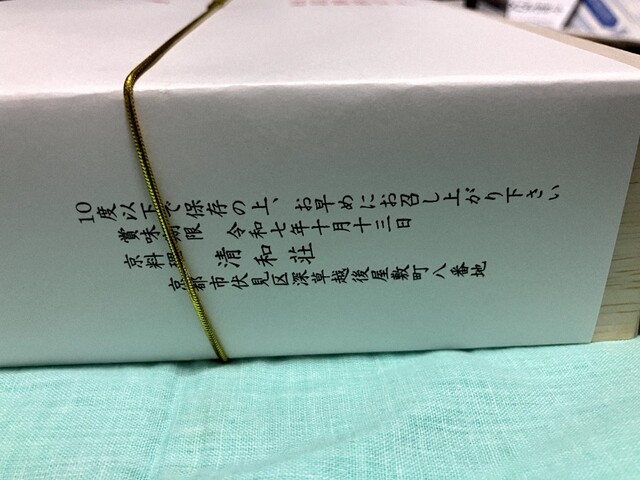 10度以下で保存の上、お早めにお召し上がり下さい
賞味期限 令和七年十月十三日
京料理 清和荘
京都市伏見区深草越後屋敷町八番地